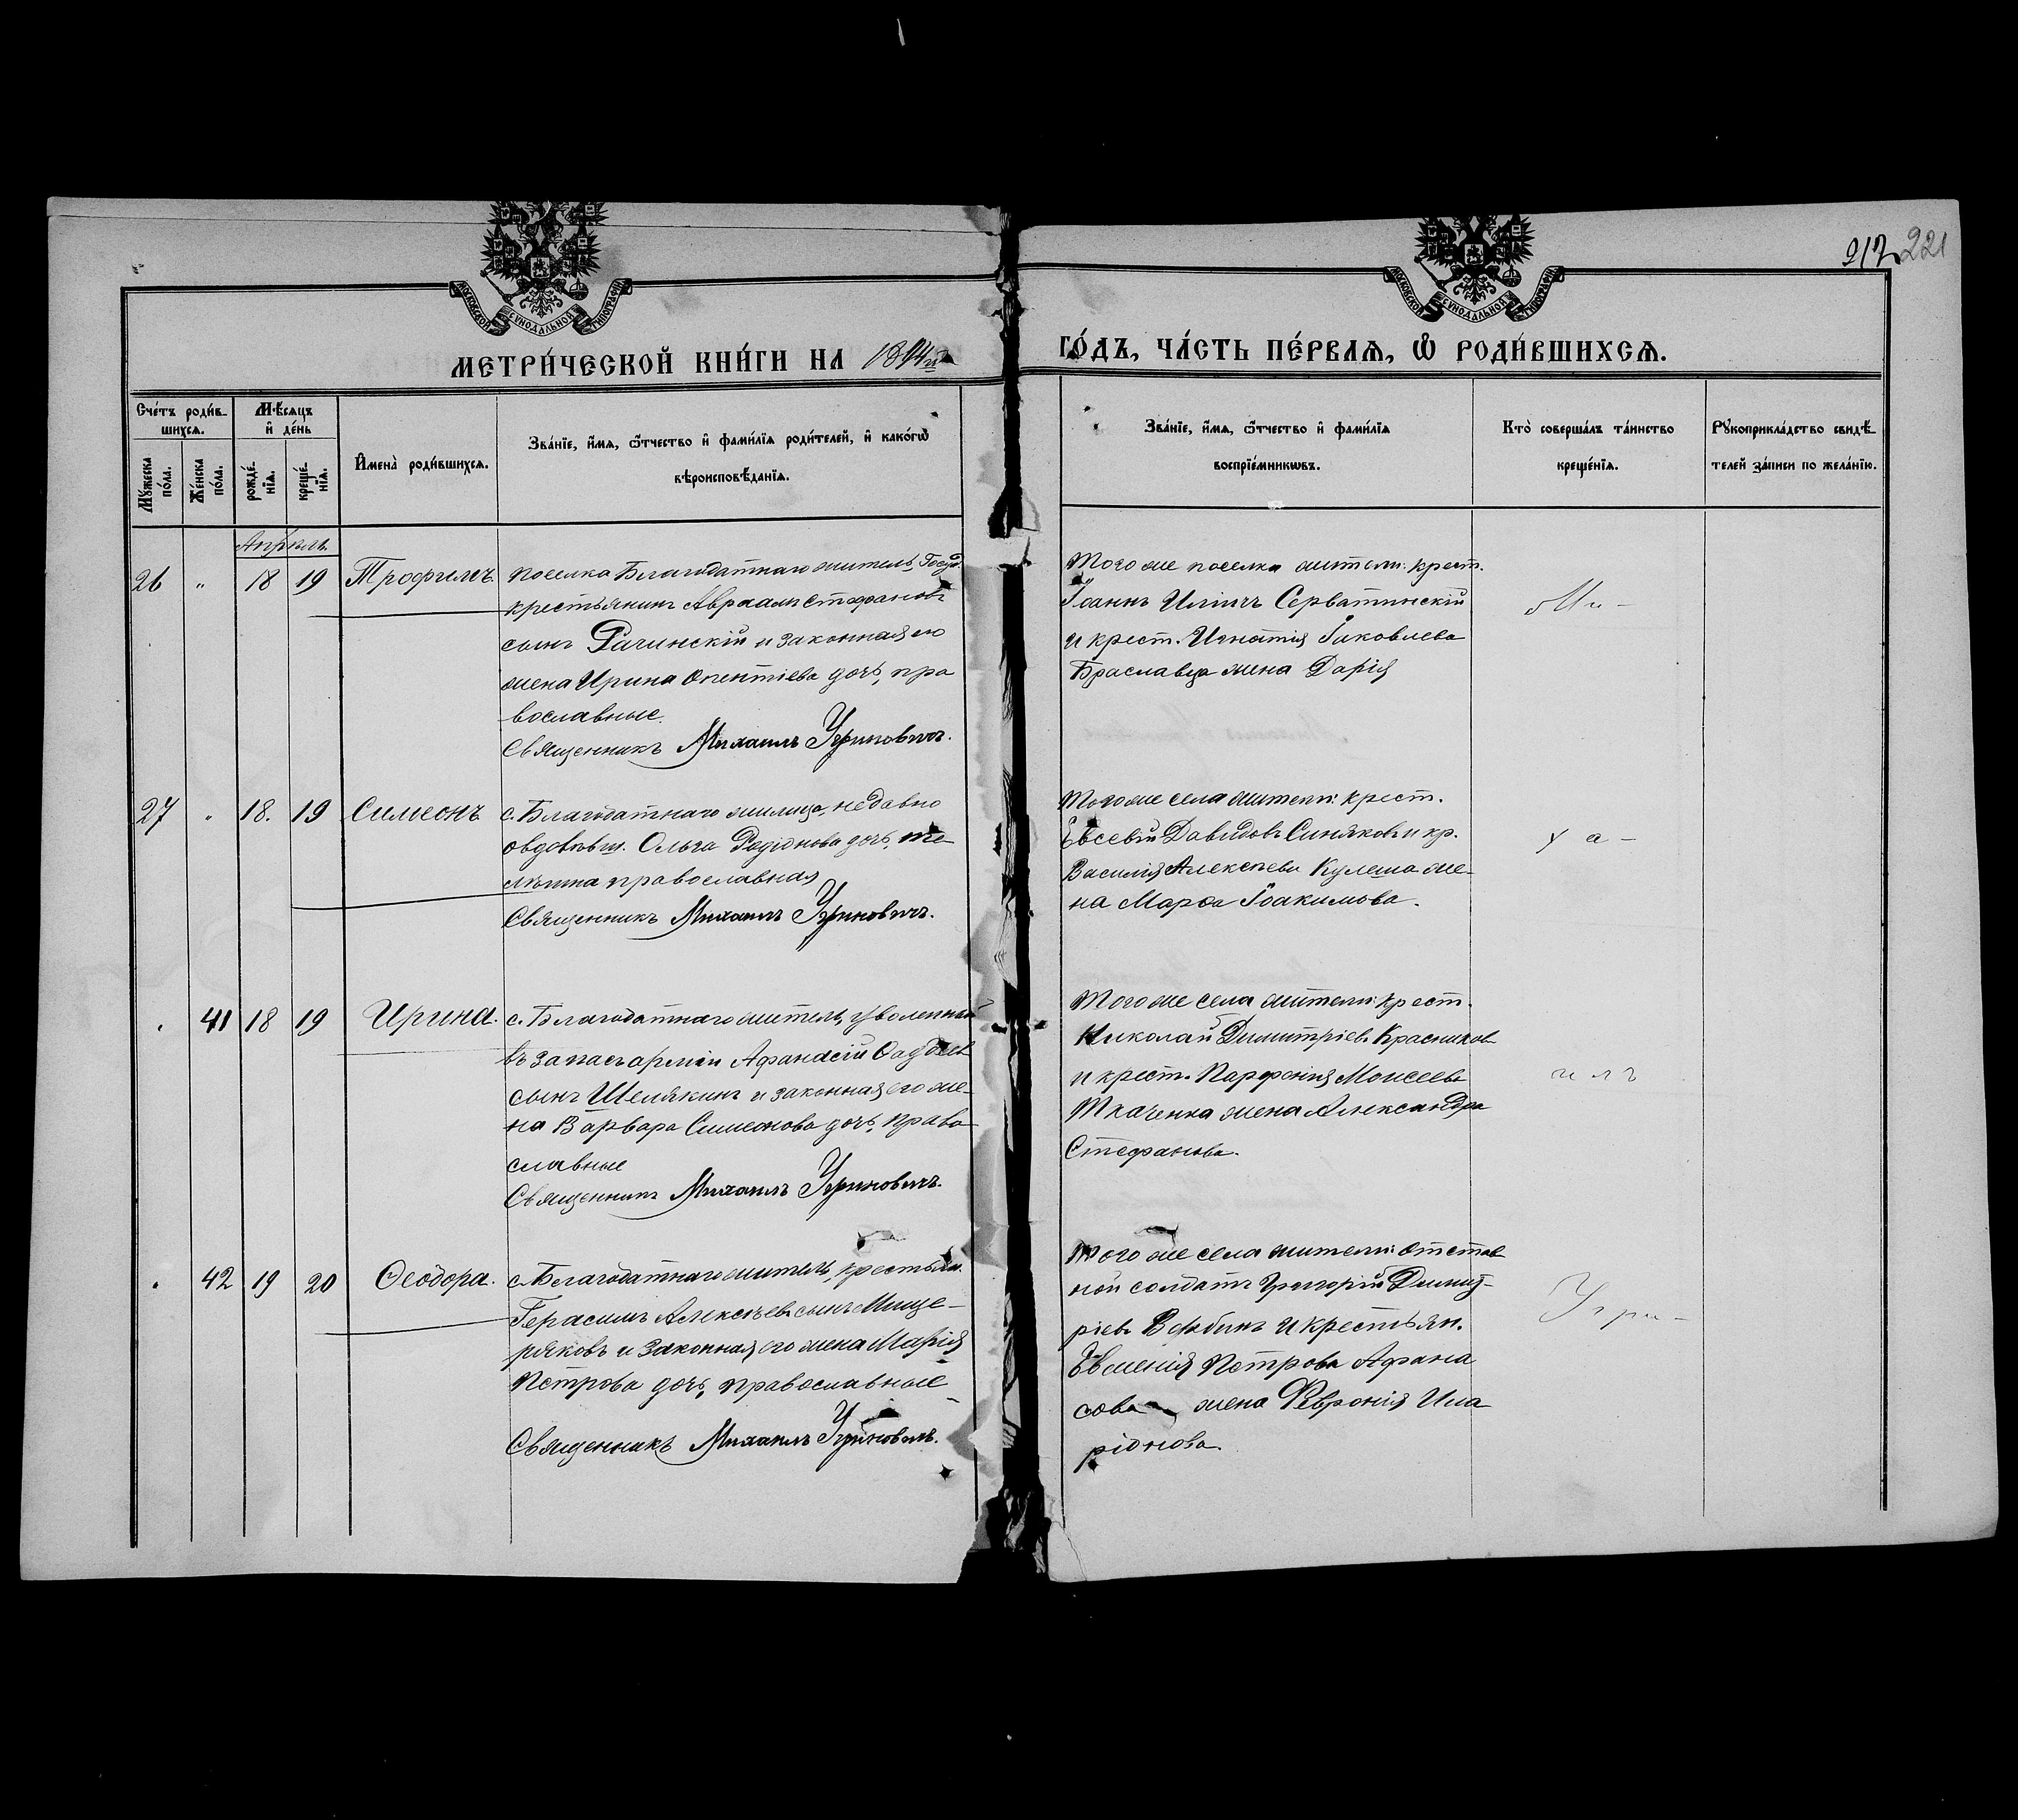 217 221
МОСКОВСКОЙ СѴНОДАЛЬНОЙ ТИПОГРАФІИ
МОСКОВСКОЙ СѴНОДАЛЬНОЙ ТИПОГРАФІИ
МЕТРИ́ЧЕСКОЙ КНИ́ГИ НА 1894й
ГО́ДЪ, ЧА́СТЬ ПЕ́РВАѦ, Ѽ РОДИ́ВШИХСѦ.
Сче́тъ роди́в-
шихсѧ.
Мѣ́сѧцъ
и҆ де́нь
Мꙋ́жеска
по́ла.
Же́нска
по́ла.
рожде́-
нїѧ.
креще́-
нїѧ.
И҆мена̀ роди́вшихсѧ.
Зва́нїе, и҆́мѧ, ѻ҆́тчество и҆ фами́лїѧ роди́телей, и҆ како́гѡ
вѣроисповѣ́данїѧ.
Зва́нїе, и҆́мѧ, ѻ҆́тчество и҆ фами́лїѧ
воспрїе́мникѡвъ.
Кто̀ соверша́лъ та́инство
креще́нїѧ.
Рꙋкоприкла́дство свидѣ́-
телей за́писи по жела́нїю.
Апрѣль.
26 " 18 19 Трофимъ.
поселка Благодатнаго житель, Госуд.
крестьянинъ Авраамъ Стефановъ
сынъ Рачинскій и законная его
жена Ирина Опентіева дочь, пра
вославные.
Священникъ Михаилъ Угриновичъ.
Того же поселка жители: крест.
Іоаннъ Иліичъ Серватинскій
и крест. Игнатія Іаковлева
Браславца жена Дарія
Ми-
27 " 18. 19 Симеонъ
с. Благодатнаго жилица, недавно
овдовѣвш. Ольга Родіонова дочь,
православная
Священникъ Михаилъ Угриновичъ.
Того же села жители: крест.
Евсевій Давидовъ Синяковъ и кр.
Василія Алексѣева Кулеша же-
на Марѳа Іоакимова.
ха-
" 41 18 19 Ирина.
с. Благодатнаго житель, уволенный
въ запасъ арміи Афанасій Ѳаддеев
сынъ Шелякинъ и законная его же-
на Варвара Симеонова дочь, право
славные
Священникъ Михаилъ Угриновичъ.
Того же села жители: крест.
Николай Димитріев. Красников
и крест. Парфенія Моисеева
Ткаченка жена Александра
Стефанова.
илъ
" 42 19 20 Ѳеодора.
с. Благодатнаго житель, крестьян.
Герасимъ Алексѣевъ сынъ Меще-
ряковъ и законная его жена Марія
Петрова дочь, православные
Священникъ Михаилъ Угриновичъ.
Того же села жители: отстав
ной солдатъ Григорій Димит-
ріев. и крестьян.
Евменія Петрова Афана
сова жена Февронія Ила
ріонова.
Угри-